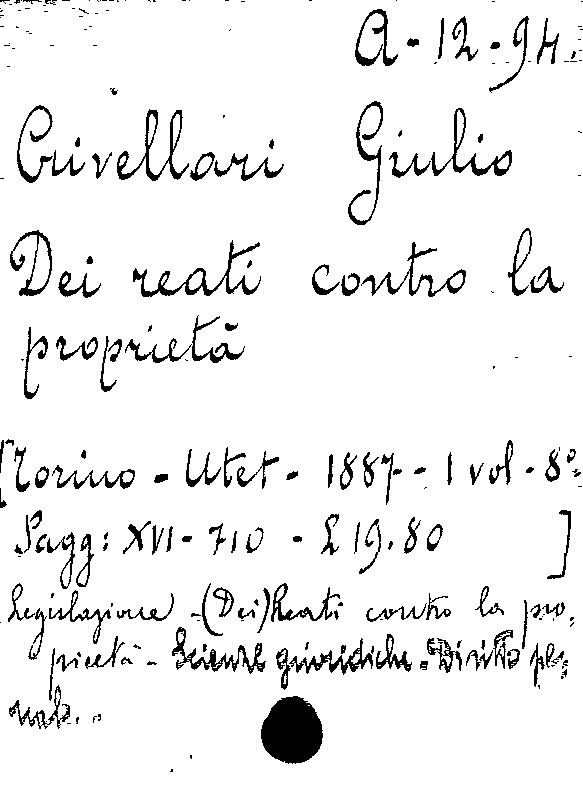 A-12-94.
Crivellari Giulio
Dei reati contro la
proprietà
[Torino - Utet - 1887 - 1 vol - 8°-
Pagg: XVI-710 - £ 19.80 ]
Legislazione - (Dei) Reati contro la pro=
prietà - Scienze giuridiche - Diritto pe=
nale..